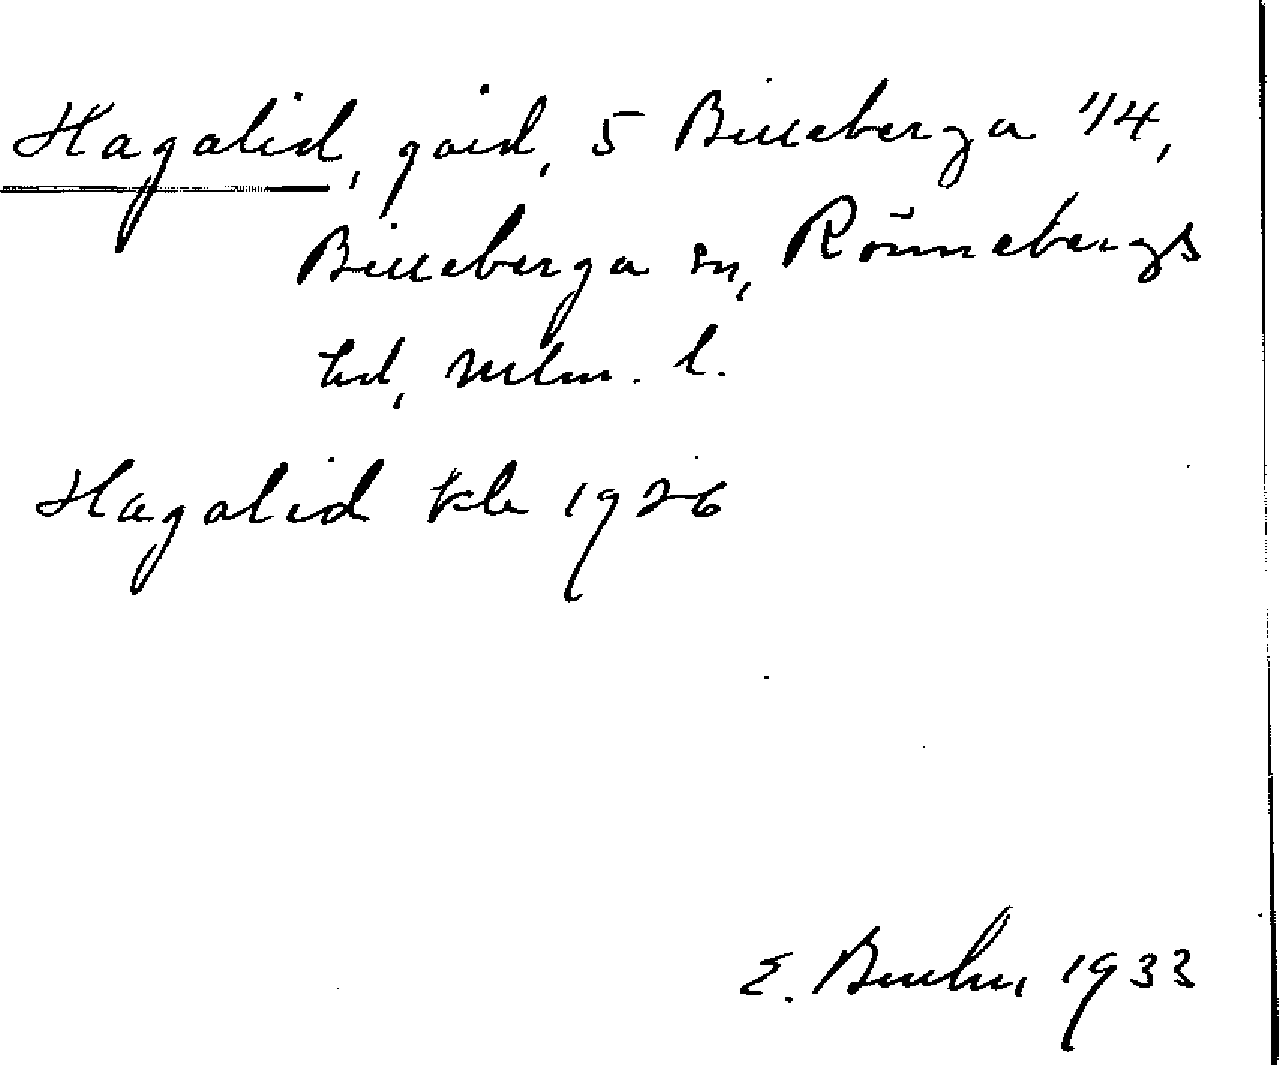 Hagalid, gård, 5 Billeberga 1/4,
Billeberga sn, Rönnebergs
hd, Mlm. l.
Hagalid kb 1926
E. 1933